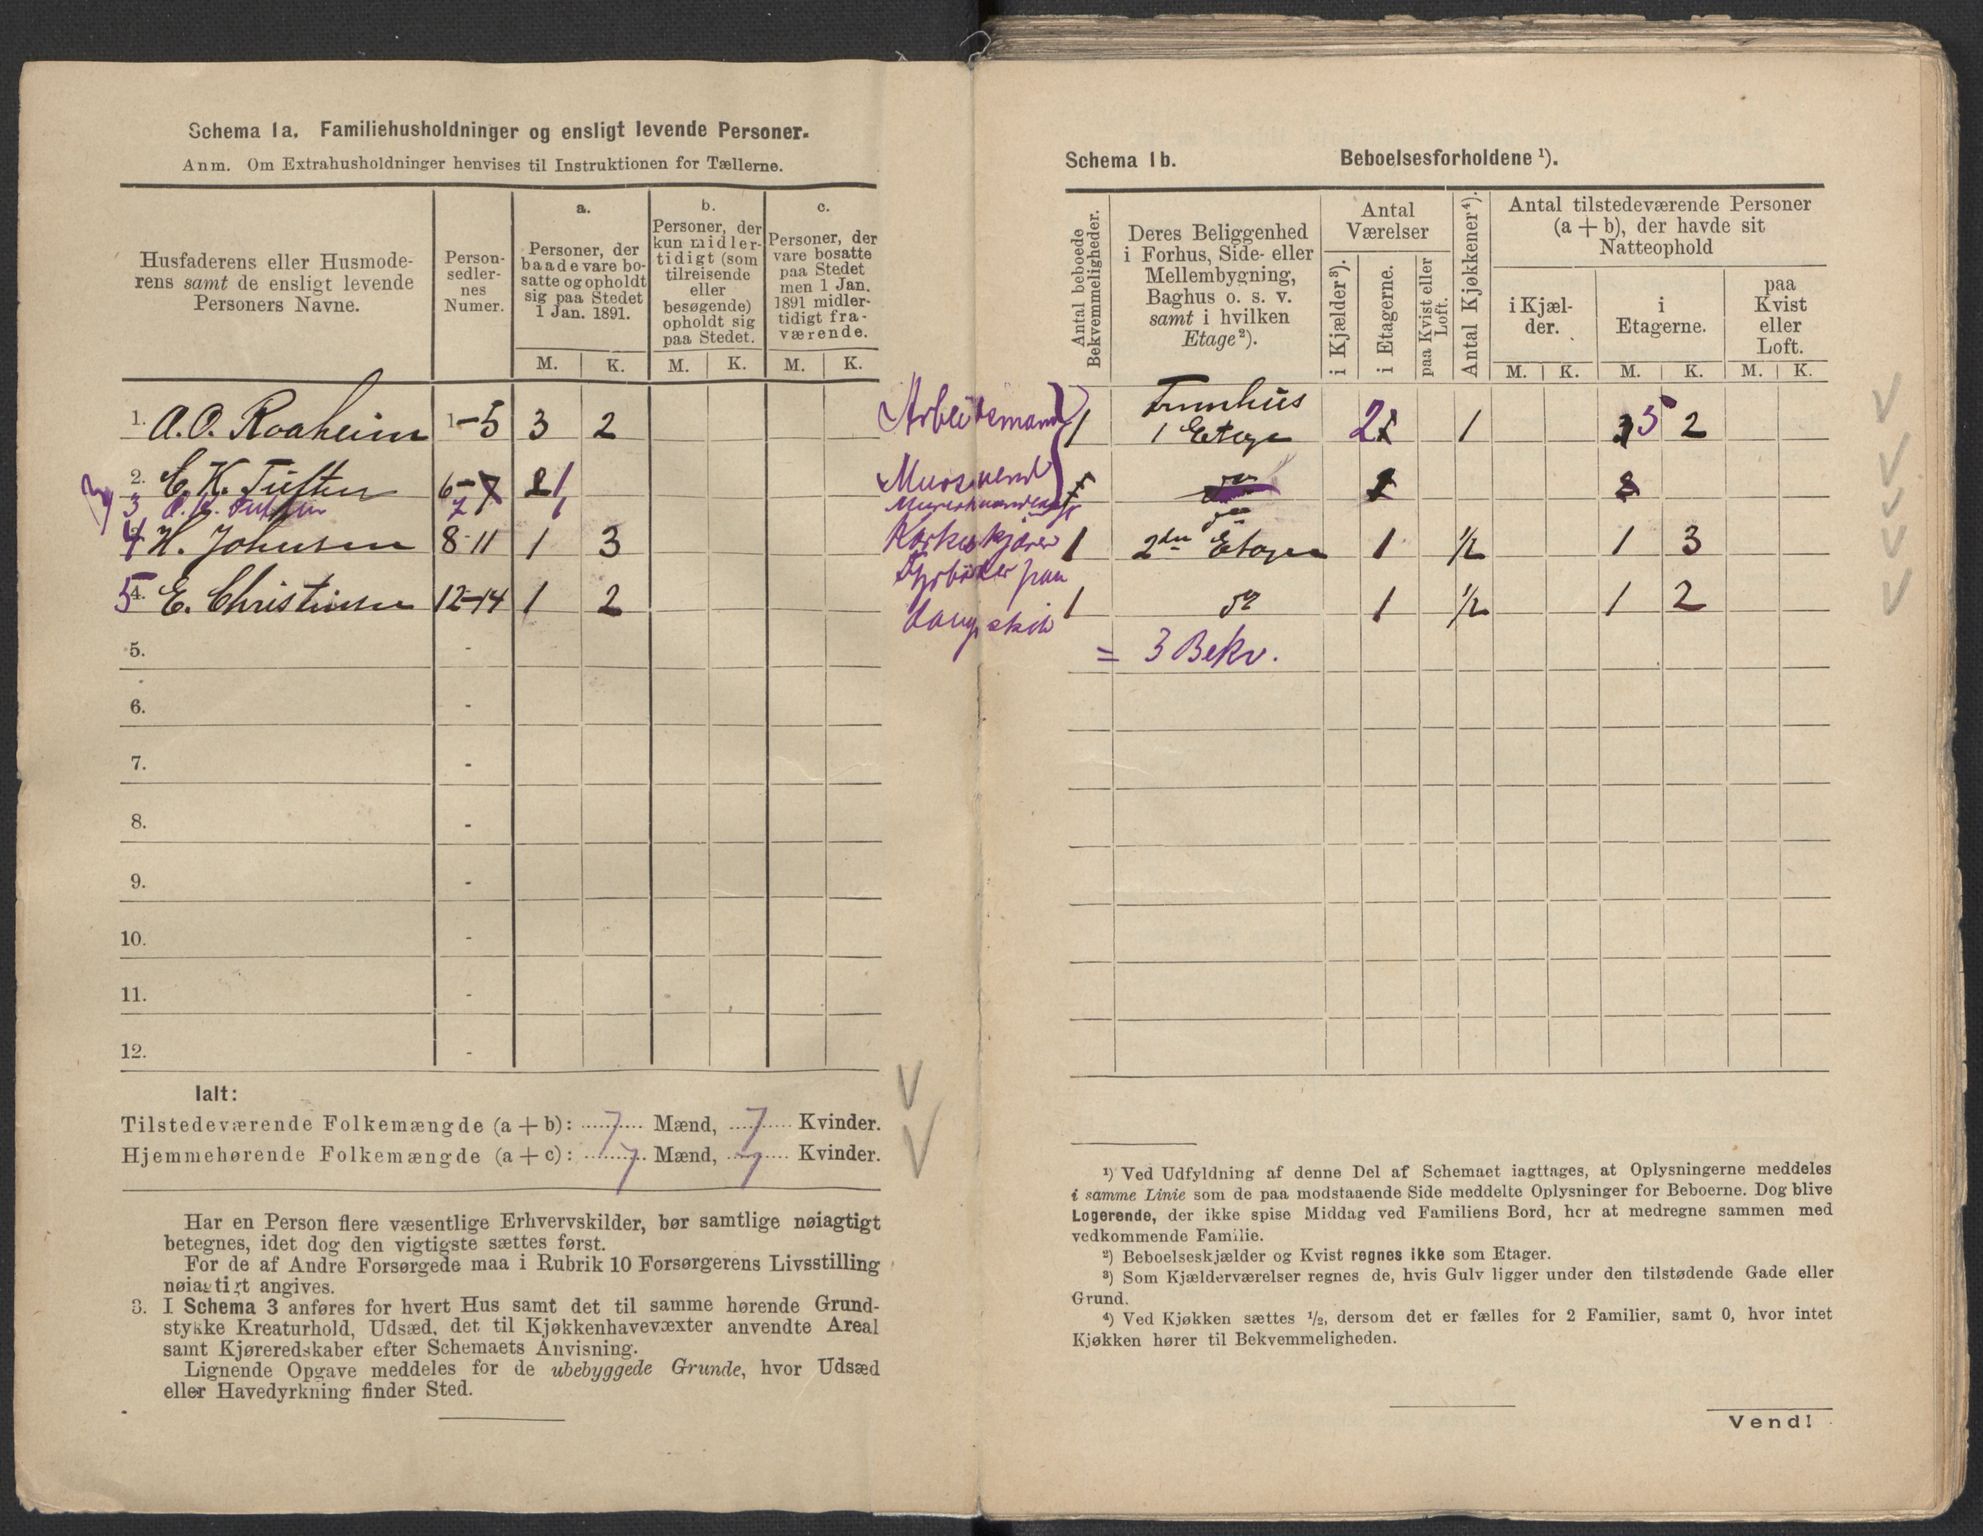 Schema 1a. Familiehusholdninger og ensligt levende Personer.
Anm. Om Extrahusholdninger henvises til Instruktionen for Tællerne.
Husfaderens eller Husmode-
rens samt de ensligt levende
Personers Navne.
Person-
sedler-
nes
Numer.
a.
Personer, der
baade vare bo-
satte og opholdt
sig paa Stedet
1 Jan. 1891.
b.
Personer, der
kun midler-
tidigt (som
tilreisende
eller
besøgende)
opholdt sig
paa Stedet.
c.
Personer, der
vare bosatte
paa Stedet
men 1 Jan.
1891 midler-
tidigt fra-
værende.
M. K. M. K. M. K.
1. A. O. Roaheim 1-5 3 2 Arbeidsmand
2. C. K. Tuften 6-7 1 Murersvend
3 7 1
4 H. Johnsen 8-11 1 3
5 4. E. Christensen 12-14 1 2 Fyrbøder paa
5. -
6. -
7. -
8. -
9. -
10. -
11. -
12. -
Ialt:
Tilstedeværende Folkemængde (a + b): 7 Mænd, 7 Kvinder.
Hjemmehørende Folkemængde (a + c): 7 Mænd, 7 Kvinder.
Har en Person flere væsentlige Erhvervskilder, bør samtlige nøiagtigt
betegnes, idet dog den vigtigste sættes først.
For de af Andre Forsørgede maa i Rubrik 10 Forsørgerens Livsstilling
nøiagtigt angives.
3. I Schema 3 anføres for hvert Hus samt det til samme hørende Grund-
stykke Kreaturhold, Udsæd, det til Kjøkkenhavevæxter anvendte Areal
samt Kjøreredskaber efter Schemaets Anvisning.
Lignende Opgave meddeles for de ubebyggede Grunde, hvor Udsæd
eller Havedyrkning finder Sted.
Schema 1b. Beboelsesforholdene ¹).
Antal beboede
Bekvemmeligheder.
Deres Beliggenhed
i Forhus, Side- eller
Mellembygning,
Baghus o. s. v.
samt i hvilken
Etage²).
Antal
Værelser
i Kjælder³).
i Etagerne.
paa Kvist eller
Loft.
Antal Kjøkkener⁴).
Antal tilstedeværende Personer
(a + b), der havde sit
Natteophold
i Kjæl-
der.
i
Etagerne.
paa
Kvist
eller
Loft.
M. K. M. K. M. K.
1 1 Etage 2 1 5 2
1 2den Etagen 1 1/2 1 3
1 do 1 1/2 1 2
= 3 Bekv.
¹) Ved Udfyldning af denne Del af Schemaet iagttages, at Oplysningerne meddeles
i samme Linie som de paa modstaaende Side meddelte Oplysninger for Beboerne. Dog blive
Logerende, der ikke spise Middag ved Familiens Bord, her at medregne sammen med
vedkommende Familie.
²) Beboelseskjælder og Kvist regnes ikke som Etager.
³) Som Kjælderværelser regnes de, hvis Gulv ligger under den tilstødende Gade eller
Grund.
⁴) Ved Kjøkken sættes ½, dersom det er fælles for 2 Familier, samt 0, hvor intet
Kjøkken hører til Bekvemmeligheden.
Vend!